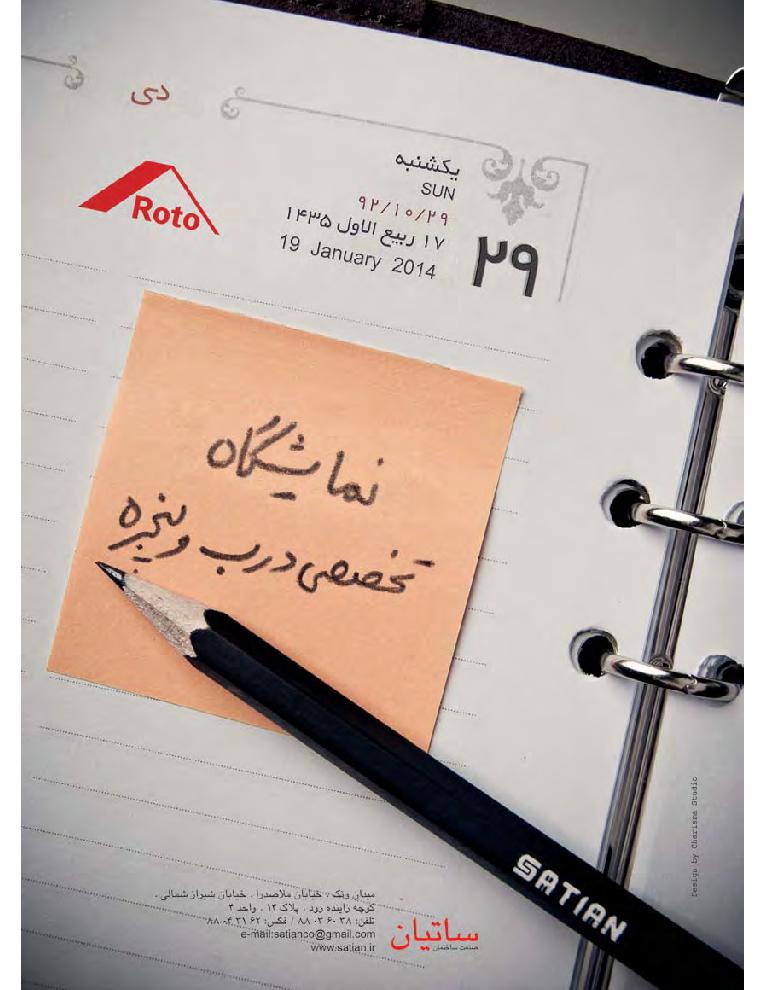 دی
یکشنبه
SUN
۹۲/۱۰/۲۹
۱۷ ربیع الاول ۱۴۳۵
19 January 2014
۲۹
Roto
نمایشگاه
تخصصی درب و پنجره
SATIAN
میدان ونک ، خیابان ملاصدرا ، خیابان شیراز شمالی ،
کوچه زاینده رود ، پلاک ۱۲ ، واحد ۳
تلفن: ۳۸ ۶۰ ۸۸۰۳ / فکس: ۶۲ ۳۱ ۸۸۰۴
e-mail:satianco@gmail.com
www.satian.ir
ساتیان
صنعت ساختمان
Design by Charisma Studio